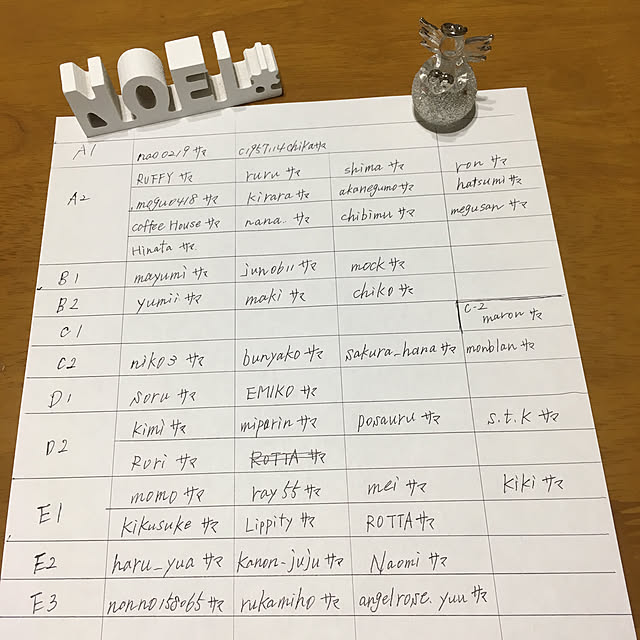 NOEL
A1 nao0219 サマ c1957114chika サマ
A2 RUFFY サマ ruru サマ shima サマ ron サマ
.megu0418 サマ kirara サマ akanegumo サマ hatsumi サマ
coffee House サマ nana.. サマ chibimu サマ megusan サマ
Hinata サマ
B1 mayumi サマ junobu サマ mock サマ
B2 yumii サマ maki サマ chiko サマ
C1 C-2 maron サマ
C2 niko3 サマ bunyako サマ sakura_hana サマ monblan サマ
D1 soru サマ EMIKO サマ
D2 kimi サマ miparin サマ posauru サマ s.t.k サマ
Rori サマ ROTTA サマ
E1 momo サマ ray55 サマ mei サマ kiki サマ
kikusuke サマ Lippity サマ ROTTA サマ
E2 haru_yua サマ kanon-juju サマ Naomi サマ
E3 nonno158065 サマ rukamiho サマ angelrose.yuu サマ